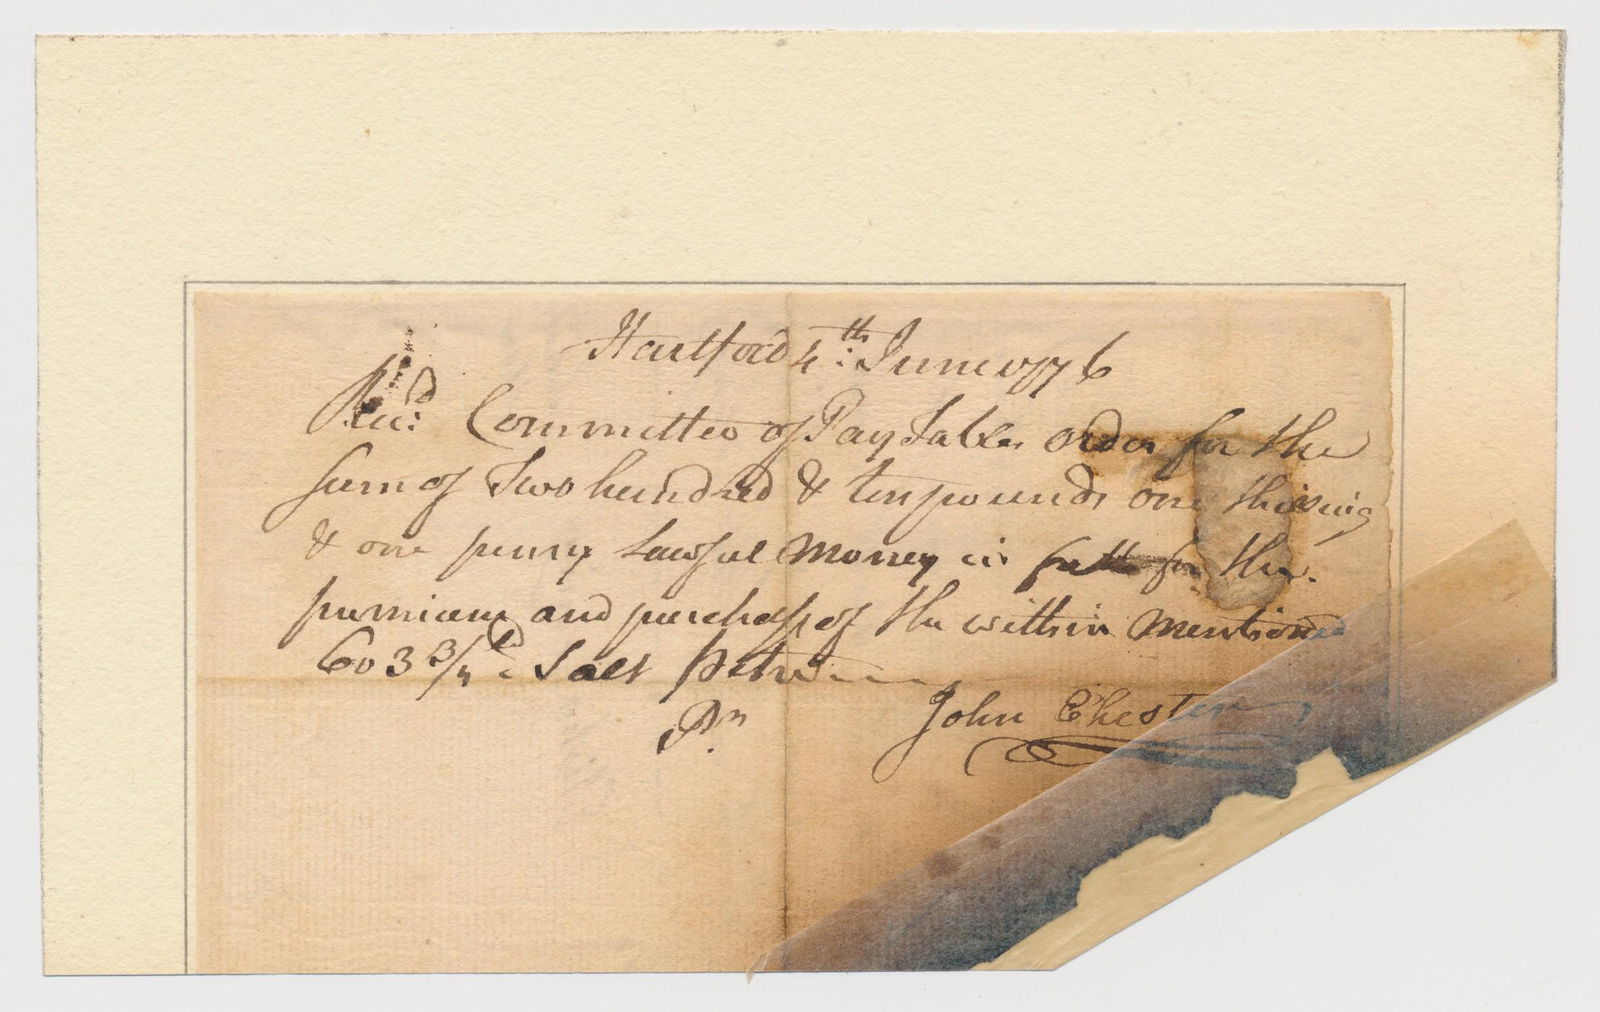 Hartford 4th: June 1776
Recd: Committee of Pay Table order for the
sum of Two hundred & ten pounds one shilling
& one penny Lawful Money in full for the
premium and purchase of the within mentioned
603 3/4 lb Salt Petre
Pr
John Chester